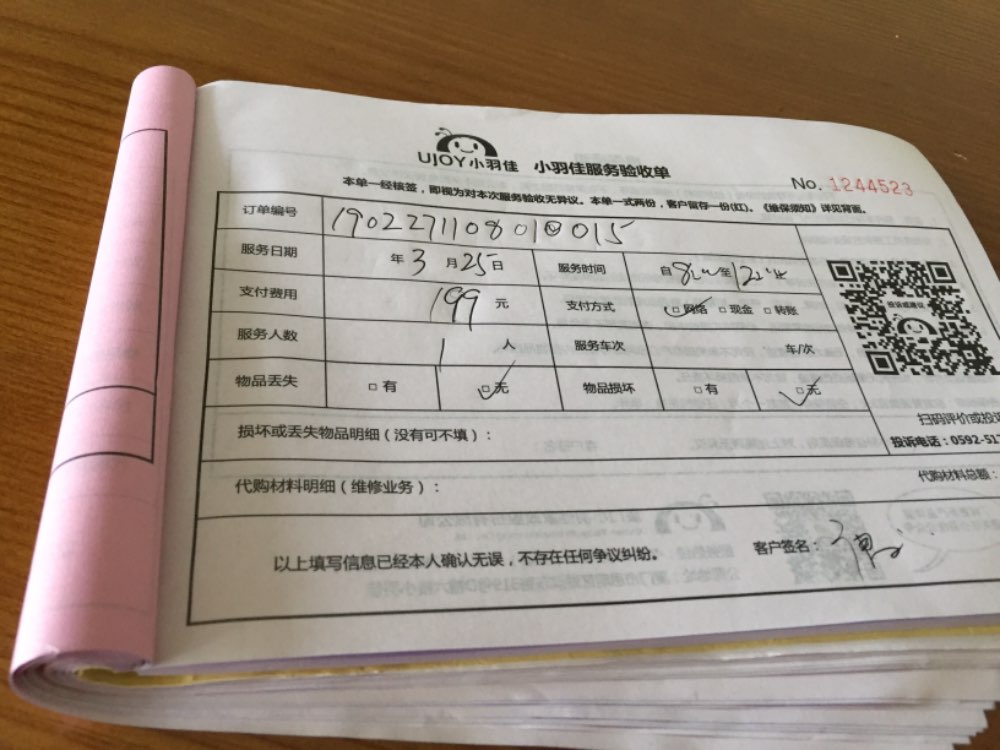 UJOY小羽佳 小羽佳服务验收单
No. 1244523
本单一经核签，即视为对本次服务验收无异议。本单一式两份，客户留存一份(红)。《维保须知》详见背面。
订单编号 1902271108010015
服务日期 年3月25日 服务时间 自8 至12
支付费用 199元 支付方式 □网络 □现金 □转账
服务人数 1人 服务车次 车/次
物品丢失 □有 □无 物品损坏 □有 □无
投诉或建议
扫码评价或投诉
投诉电话：0592-51
损坏或丢失物品明细（没有可不填）：
代购材料明细（维修业务）： 代购材料总额：
以上填写信息已经本人确认无误，不存在任何争议纠纷。 客户签名：